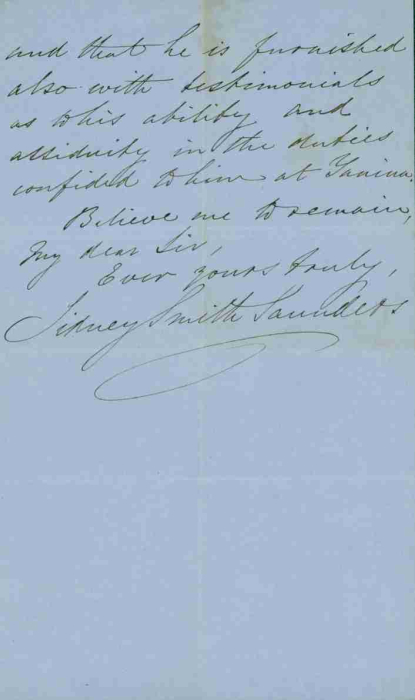 and that he is furnished
also with testimonials
as to his ability and
assiduity in the duties
confided to him at Yanina.
Believe me to remain,
My dear Sir,
Ever yours truly,
Sidney Smith Saunders